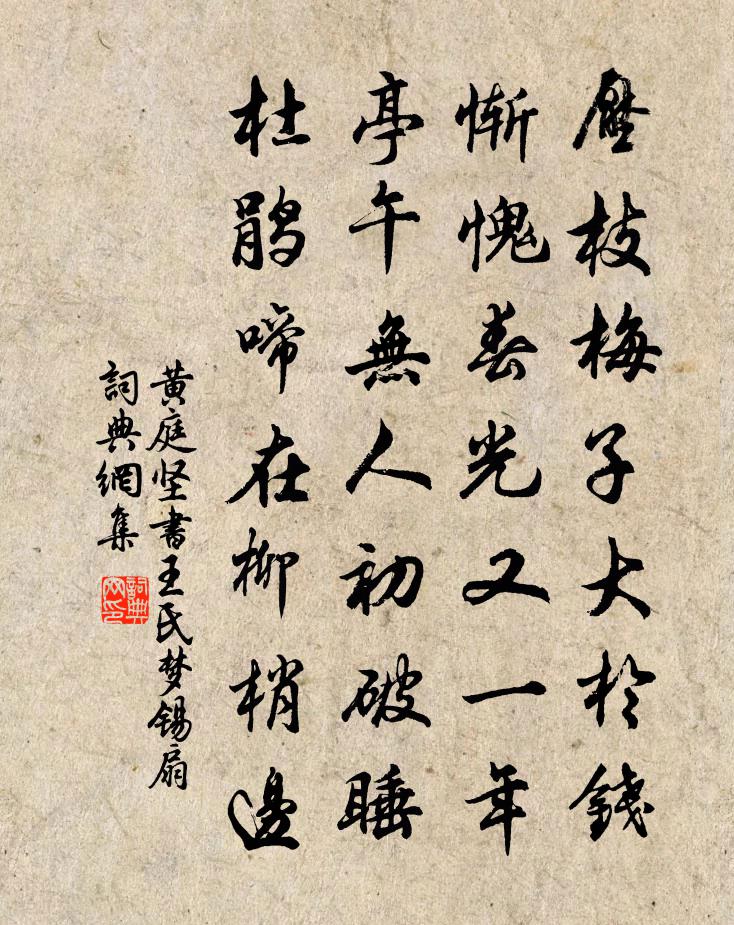 壓枝梅子大於錢
慚愧春光又一年
亭午無人初破睡
杜鵑啼在柳梢邊
黄庭坚書王氏梦锡扇
詞典網集
詞典網印